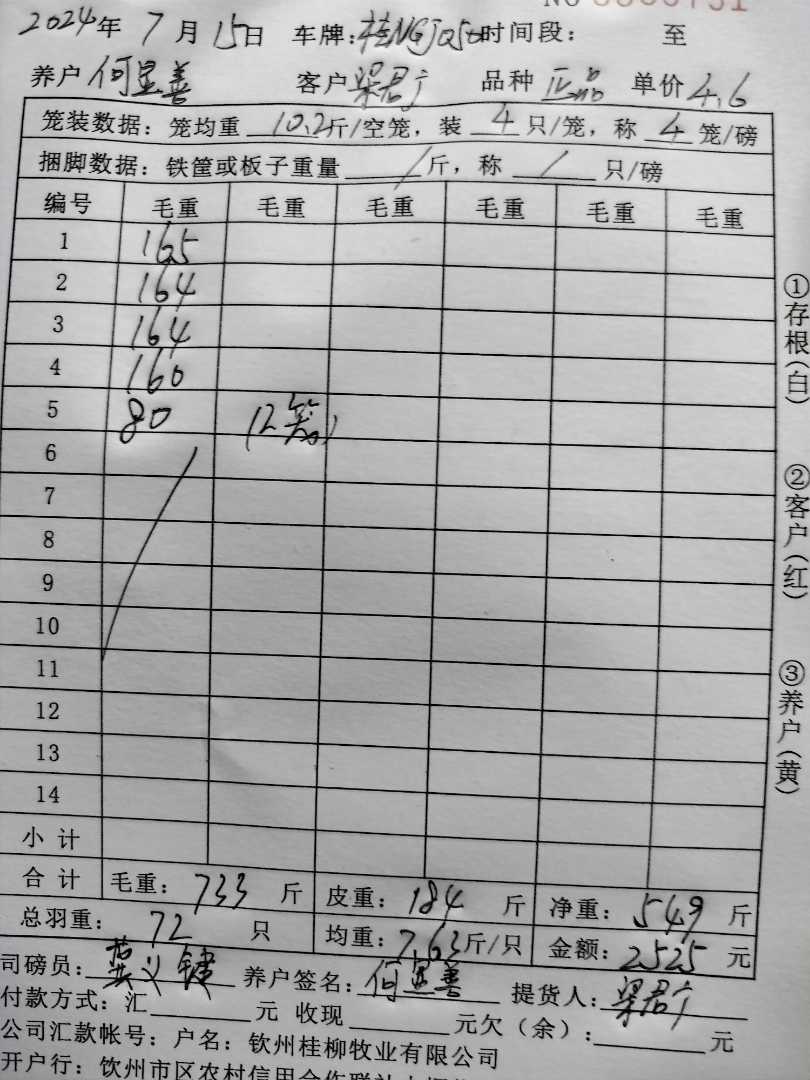 2024年 7 月 15日 车牌: 时间段: 至
养户 何显善 客户 梁君广 品种 正品 单价 4.6
笼装数据: 笼均重 10.2斤/空笼, 装 4 只/笼, 称 4 笼/磅
捆脚数据: 铁筐或板子重量 / 斤, 称 / 只/磅
编号 毛重 毛重 毛重 毛重 毛重 毛重
1 165
2 164
3 164
4 160
5 80 (2笼)
6
7
8
9
10
11
12
13
14
小计
合计 毛重: 733 斤 皮重: 184 斤 净重: 549 斤
总羽重: 72 只 均重: 7.63斤/只 金额: 2525 元
司磅员: 养户签名: 何显善 提货人: 梁君广
付款方式: 汇 元 收现 元欠(余): 元
公司汇款帐号: 户名: 钦州桂柳牧业有限公司
开户行: 钦州市区农村信用合作联社
①存根(白) ②客户(红) ③养户(黄)